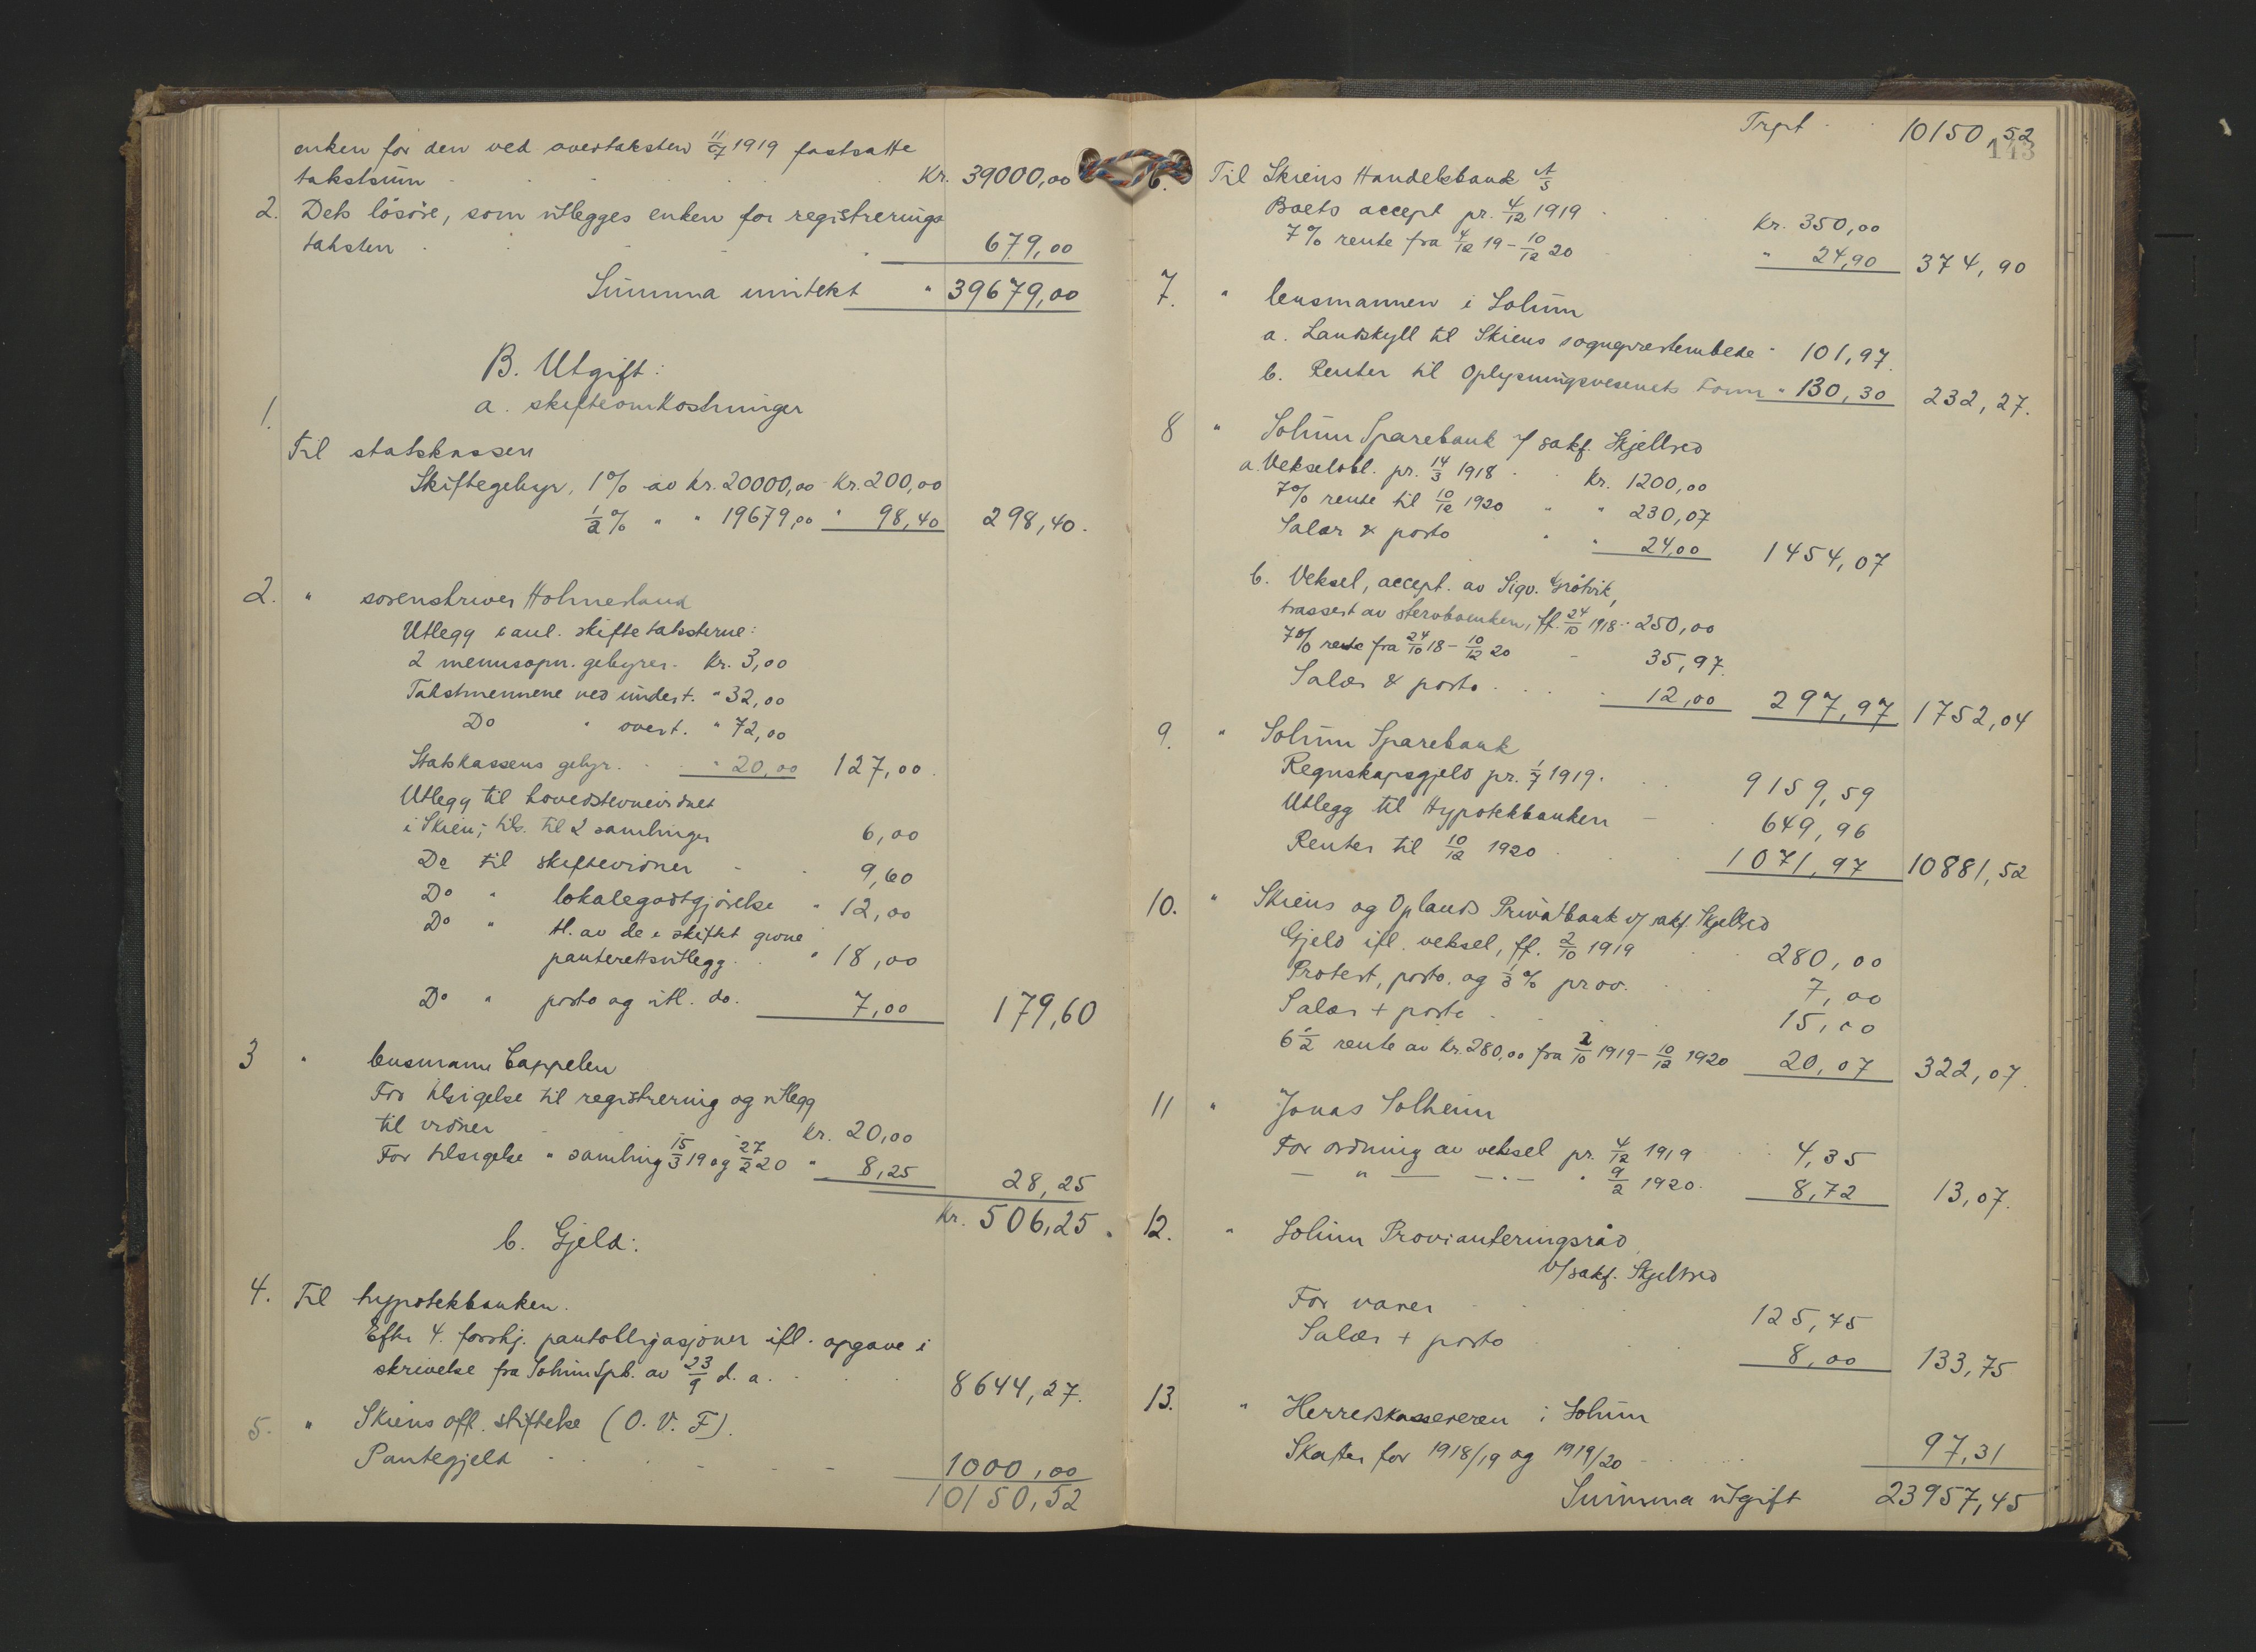 enken for den ved overtaksten 11/9 1919 fastsatte
takstsum Kr. 39000,00
2. Dets lösöre, som utlegges enken for registrerings
taksten 679,00
Summa inntekt " 39679,00
B. Utgift:
a. skifteomkostninger
1.
Til statskassen
Skiftegebyr, 1% av Kr. 20000,00 Kr. 200,00
1/2% " " 19679,00 " 98,40 298,40.
2. " sorenskriver Holmesland
Utlegg i anl. skiftetaksterne:
2 mennsopn. gebyrer. Kr. 3,00
Takstmennene ved undert. " 32,00
Do " overt. " 72,00
Statskassens gebyr. " 20,00 127,00.
Utlegg til hovedstevnevidnet
i Skien; tils. til 2 samlinger 6,00
Do til skiftevidner 9,60
Do " lokalegodtgjörelse " 12,00
Do " tl. av de i skiftet givne
panterettsutlegg. " 18,00
Do " porto og itl. do. 7,00 179,60
3 " lensmann Cappelen
For tilsigelse til registrering og utlegg
til vidner Kr. 20,00
For tilsigelse " samling 15/3 19 og 27/2 20 " 8,25 28,25
Kr. 506,25
b. Gjeld:
4. Til hypotekbanken.
Efter 4. forskj. pantobligasjoner ifl. opgave i
skrivelse fra Solum Spb. av 23/9 d. a. 8644,27.
5. " Skiens off. stiftelse (O. V. F).
Pantegjeld 1000,00
10150,52
Trpt 10150,52
143
6. Til Skiens Handelsbank A/S
Boets accept pr. 4/12 1919 Kr. 350,00
7% rente fra 4/12 19 - 10/12 20 " 24,90 374,90
7. " lensmannen i Solum
a. Landskyll til Skiens sogneprestembede " 101,97.
b. Renter til Oplysningsvesenets Fonn " 130,30 232,27.
8 " Solum Sparebank v/ sakf. Skjelbred
a. Vekselobl. pr. 14/3 1918 Kr. 1200,00
7% rente til 10/12 1920 " " 230,07
Salær & porto " " 24,00 1454,07
b. Veksel, accept. av Sigv. Gråtvik,
trassert av stervboenken, ff. 24/10 1918 " 250,00
7% rente fra 24/10 18 - 10/12 20 - 35,97.
Salær & porto 12,00 297,97 1752,04
9. " Solum Sparebank
Regnskapsgjeld pr. 1/7 1919. 9159,59
Utlegg til Hypotekbanken 649,96
Renter til 10/12 1920 1071,97 10881,52
10. " Skiens og Oplands Privatbank v/ sakf. Skjelbred
Gjeld ifl. veksel, ff. 2/10 1919 280,00
Protest, porto, og 1/3% prov. 7,00
Salær + porto 15,00
6 1/2 rente av Kr. 280,00 fra 2/10 1919 - 10/12 1920 20,07 322,07.
11 " Jonas Solheim
For ordning av veksel pr. 4/12 1919 4,35
— " — — " — " 9/2 1920. 8,72 13,07.
12. " Solum Provianteringsråd
v/sakf. Skjelbred
For varer 125,75
Salær + porto 8,00 133,75
13. " Herredskassereren i Solum
Skatter for 1918/19 og 1919/20 97,31
Summa utgift 23957,45